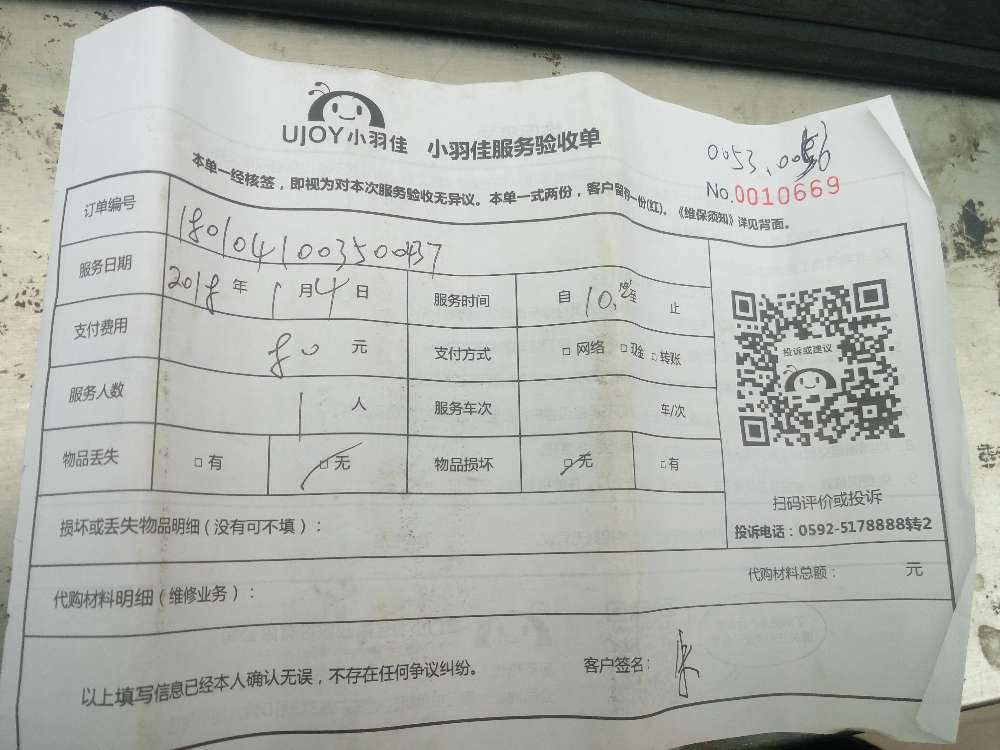 UJOY小羽佳 小羽佳服务验收单
0053.00
No.0010669
本单一经核签，即视为对本次服务验收无异议。本单一式两份，客户留存一份(红)。《维保须知》详见背面。
订单编号 180104100350037
服务日期 2018年1月4日 服务时间 自10:至 止
支付费用 80元 支付方式 □网络 □现金 □转账
服务人数 1人 服务车次 车/次
物品丢失 □有 □无 物品损坏 □无 □有
投诉或建议
扫码评价或投诉
投诉电话：0592-5178888转2
损坏或丢失物品明细（没有可不填）：
代购材料明细（维修业务）： 代购材料总额： 元
以上填写信息已经本人确认无误，不存在任何争议纠纷。 客户签名：